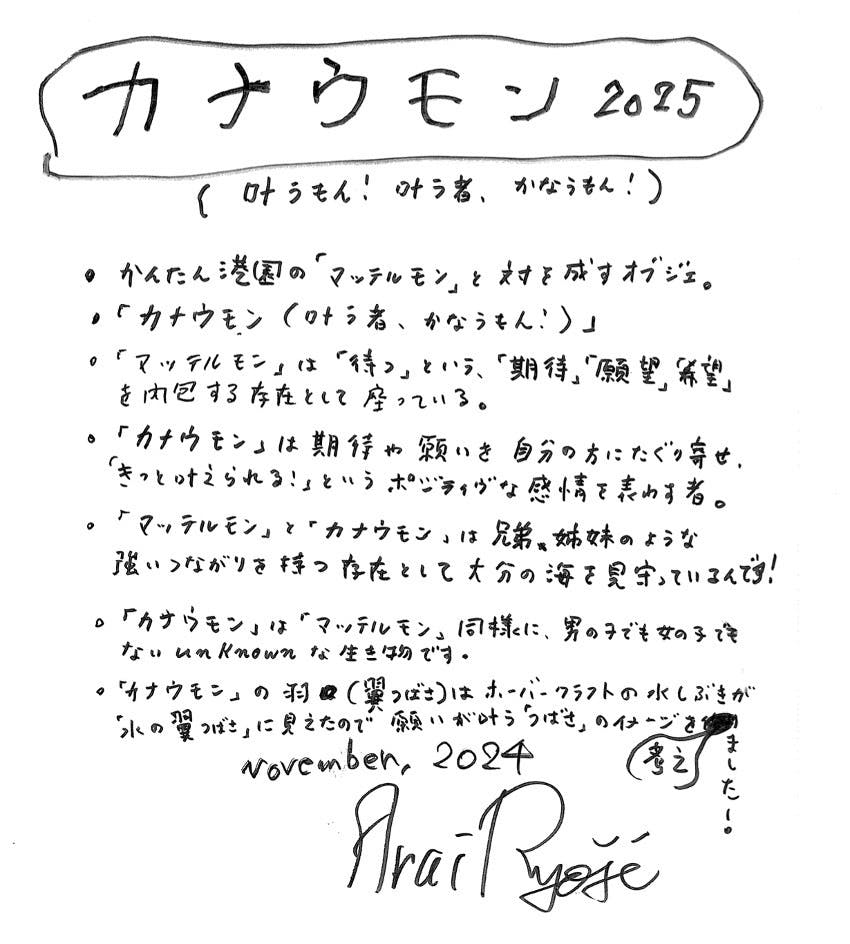 カナウモン 2025
(叶うもん! 叶う者、かなうもん!)
• かんたん港園の「マッテルモン」と 対を成すオブジェ。
• 「カナウモン (叶う者、かなうもん!)」
• 「マッテルモン」は「待つ」という、「期待」「願望」「希望」
を内包する存在として 座っている。
• 「カナウモン」は期待や願いを 自分の方にたぐり寄せ、
「きっと叶えられる!」という ポジティヴな感情を表わす者。
• 「マッテルモン」と「カナウモン」は兄弟、姉妹のような
強いつながりを持つ 存在として大分の海を見守っているんです!
• 「カナウモン」は「マッテルモン」同様に、男の子でも女の子でも
ない unknown な生き物です。
• 「カナウモン」の羽 (翼つばさ)はホーバークラフトの水しぶきが
「水の翼つばさ」に見えたので 願いが叶う「つばさ」のイメージを
考え
ました〜。
November, 2024
Arai Ryojé